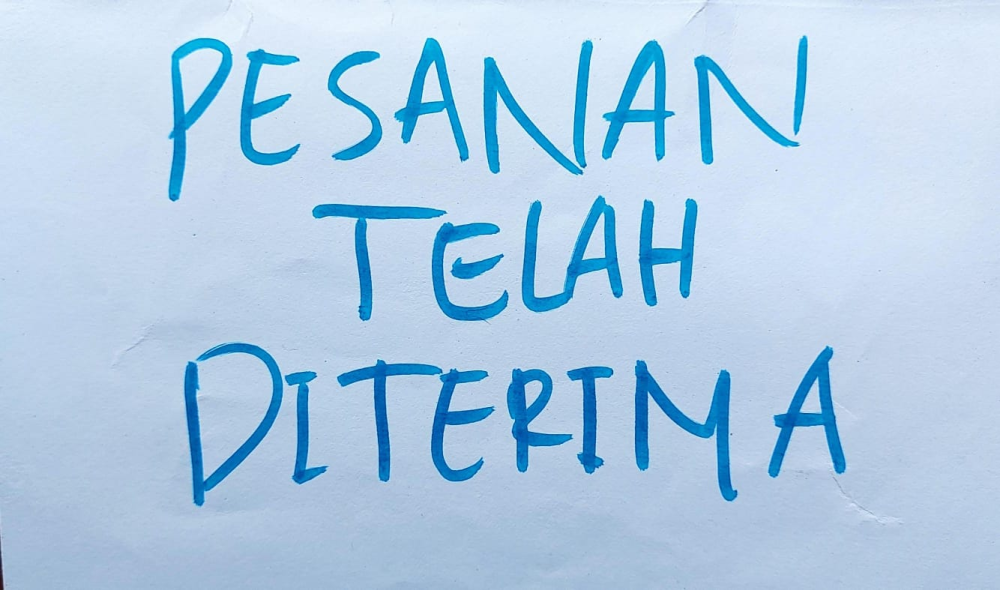 PESANAN
TELAH
DITERIMA